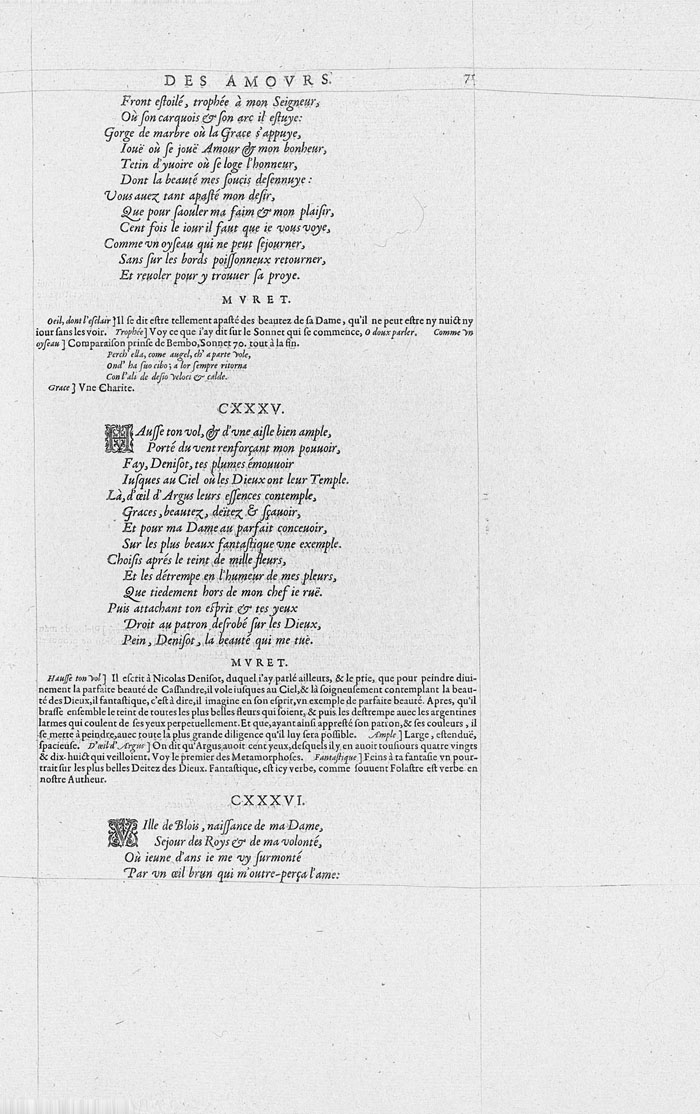 DES AMOVRS.
Front eſtoilé, trophée à mon Seigneur,
Où ſon carquois & ſon arc il eſtuye:
Gorge de marbre où la Grace s'appuye,
Iouë où ſe jouë Amour & mon bonheur,
Tetin d'yuoire où ſe loge l'honneur,
Dont la beauté mes ſoucis deſennuye:
Vous auez tant apaſté mon deſir,
Que pour ſaouler ma faim & mon plaiſir,
Cent fois le iour il faut que ie vous voye,
Comme vn oyſeau qui ne peut ſejourner,
Sans ſur les bords poiſſonneux retourner,
Et reuoler pour y trouuer ſa proye.
MVRET.
Oeil, dont l'eſclair] Il ſe dit eſtre tellement apaſté des beautez de ſa Dame, qu'il ne peut eſtre ny nuict ny
iour ſans les voir. Trophée] Voy ce que i'ay dit ſur le Sonnet qui ſe commence, O doux parler. Comme vn
oyſeau] Comparaiſon prinſe de Bembo, Sonnet 70. tout à la fin.
Perch' ella, come augel, ch' a parte vole,
Ond' ha ſuo cibo; a lor ſempre ritorna
Con l'ali de deſio veloci & calde.
Grace] Vne Charite.
CXXXV.
HAuſſe ton vol, & d'vne aiſle bien ample,
Porté du vent renforçant mon pouuoir,
Fay, Deniſot, tes plumes émouuoir
Iuſques au Ciel où les Dieux ont leur Temple.
Là, d'œil d'Argus leurs eſſences contemple,
Graces, beautez, deitez & ſçauoir,
Et pour ma Dame au parfait conceuoir,
Sur les plus beaux fantaſtique vne exemple.
Choiſis aprés le teint de mille fleurs,
Et les détrempe en l'humeur de mes pleurs,
Que tiedement hors de mon chef ie ruë.
Puis attachant ton eſprit & tes yeux
Droit au patron deſrobé ſur les Dieux,
Pein, Deniſot, la beauté qui me tuë.
MVRET.
Hauſſe ton vol] Il eſcrit à Nicolas Deniſot, duquel i'ay parlé ailleurs, & le prie, que pour peindre diui-
nement la parfaite beauté de Caſſandre, il vole iuſques au Ciel, & là ſoigneuſement contemplant la beau-
té des Dieux, il fantaſtique, c'eſt à dire, il imagine en ſon eſprit, vn exemple de parfaite beauté. Apres, qu'il
braſſe enſemble le teint de toutes les plus belles fleurs qui ſoient, & puis les deſtrempe auec les argentines
larmes qui coulent de ſes yeux perpetuellement. Et que, ayant ainſi appreſté ſon patron, & ſes couleurs, il
ſe mette à peindre, auec toute la plus grande diligence qu'il luy ſera poſſible. Ample] Large, eſtenduë,
ſpacieuſe. D'œil d'Argus] On dit qu'Argus auoit cent yeux, deſquels il y en auoit touſiours quatre vingts
& dix-huict qui veilloient. Voy le premier des Metamorphoſes. Fantaſtique] Feins à ta fantaſie vn pour-
trait ſur les plus belles Deitez des Dieux. Fantaſtique, eſt icy verbe, comme ſouuent Folaſtre eſt verbe en
noſtre Autheur.
CXXXVI.
VIlle de Blois, naiſſance de ma Dame,
Sejour des Roys & de ma volonté,
Où ieune d'ans ie me vy ſurmonté
Par vn œil brun qui m'outre-perça l'ame: